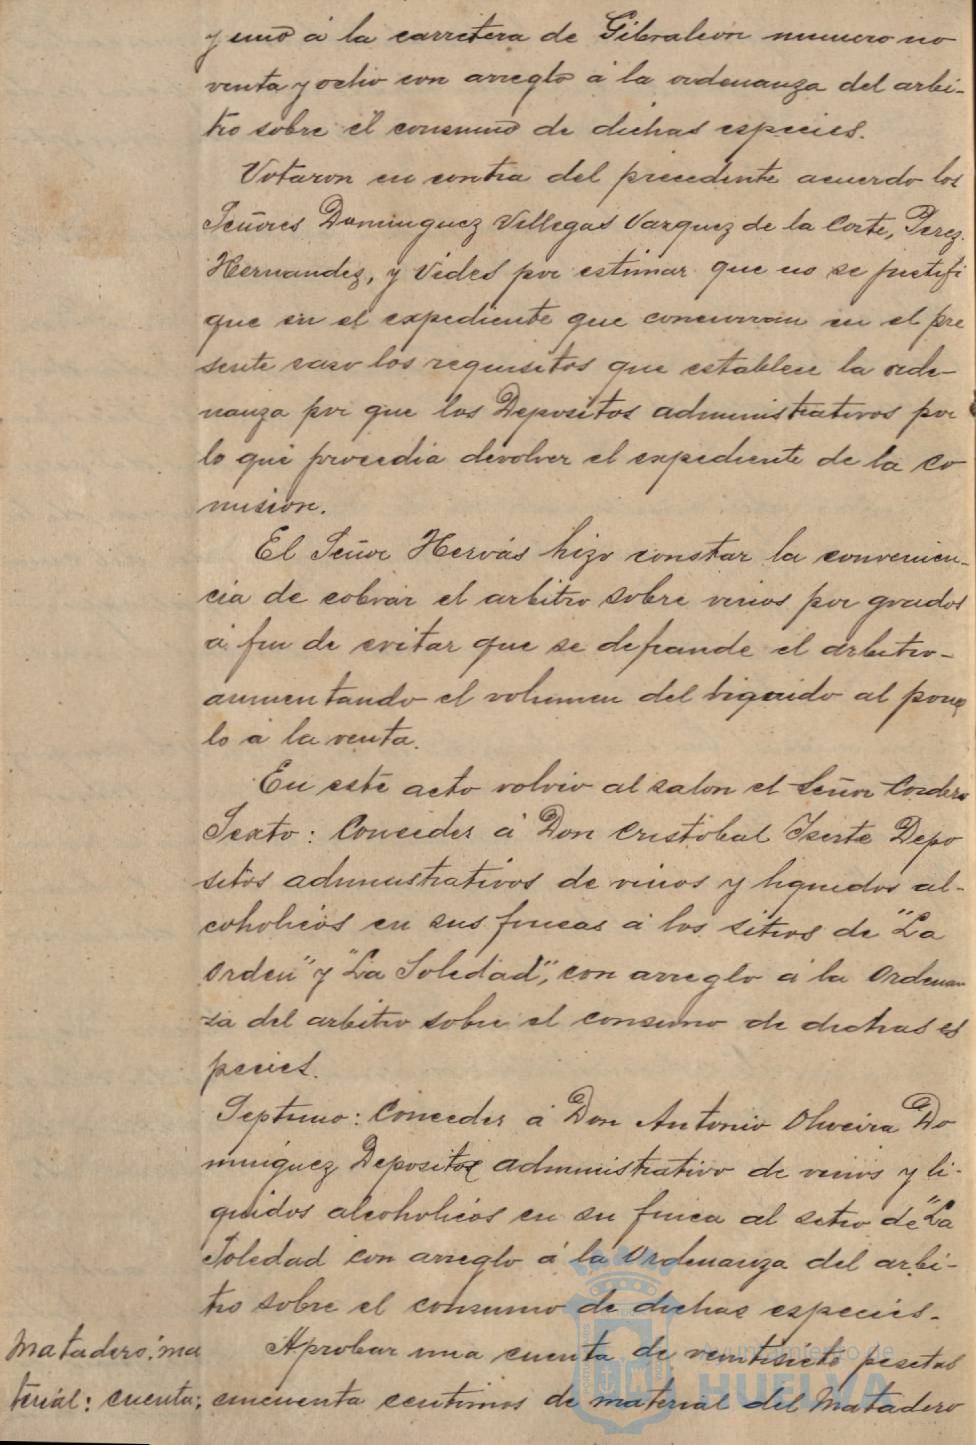 y uno á la carretera de Gibraleon numero no
venta y ocho con arreglo á la ordenanza del arbi-
tro sobre el consumo de dichas especies.
Votaron en contra del precedente acuerdo los
Señores Dominguez Villegas Vazquez de la Corte, Perez
Hernandez, y Vides por estimar que no se justifi
que en el expediente que concurran en el pre
sente caso los requisitos que establece la orde-
nanza por que los Depositos administrativos por
lo que procedia devolver el expediente de la Co
mision.
El Señor Hervás hizo constar la convenien-
cia de cobrar el arbitro sobre vinos por grados
á fin de evitar que se defraude el arbitro-
aumentando el volumen del liquido al poner
lo á la venta.
En este acto volvio al salon el Señor Cordero
Sexto: Conceder á Don Cristobal Iserte Depo
sitos administrativos de vinos y liquidos al-
coholicos en sus fincas á los sitios de "La
Orden" y "La Soledad", con arreglo á la Ordenan
za del arbitro sobre el consumo de dichas es
pecies.
Septimo: Conceder á Don Antonio Oliveira Do
minguez Deposito administrativo de vinos y li-
quidos alcoholicos en su finca al sitio de "La
Soledad con arreglo á la Ordenanza del arbi-
tro sobre el consumo de dichas especies.
Matadero: ma
terial: cuenta:
Aprobar una cuenta de veintisiete pesetas
cincuenta centimos de material del Matadero
Ayuntamiento de
HUELVA